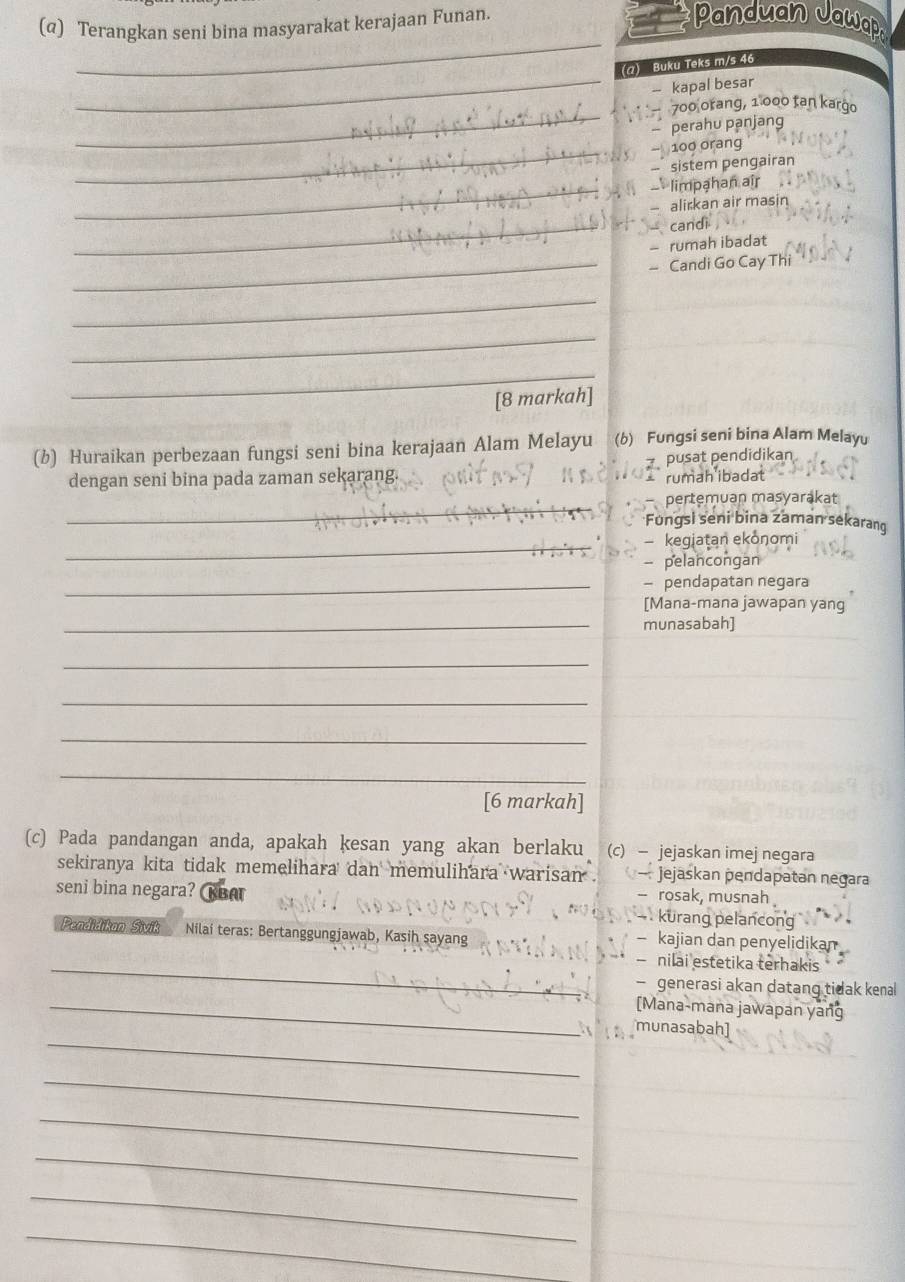 (a) Terangkan seni bina masyarakat kerajaan Funan.
[8 markah]
(b) Huraikan perbezaan fungsi seni bina kerajaan Alam Melayu
dengan seni bina pada zaman sekarang.
[6 markah]
(c) Pada pandangan anda, apakah kesan yang akan berlaku
sekiranya kita tidak memelihara dan memulihara warisan
seni bina negara? KBAT
Pendidikan Sivik Nilai teras: Bertanggungjawab, Kasih sayang
Panduan Jawapa
(a) Buku Teks m/s 46
– kapal besar
– 700 orang, 1 000 tan kargo
– perahu panjang
– 100 orang
– sistem pengairan
– limpahan air
– alirkan air masin
– candi
– rumah ibadat
– Candi Go Cay Thi
(b) Fungsi seni bina Alam Melayu
– pusat pendidikan
– rumah ibadat
– pertemuan masyarakat
Fungsi seni bina zaman sekarang
– kegiatan ekonomi
– pelancongan
– pendapatan negara
[Mana-mana jawapan yang
munasabah]
(c) – jejaskan imej negara
– jejaskan pendapatan negara
– rosak, musnah
– kurang pelancong
– kajian dan penyelidikan
– nilai estetika terhakis
– generasi akan datang tidak kenal
[Mana-mana jawapan yang
munasabah]